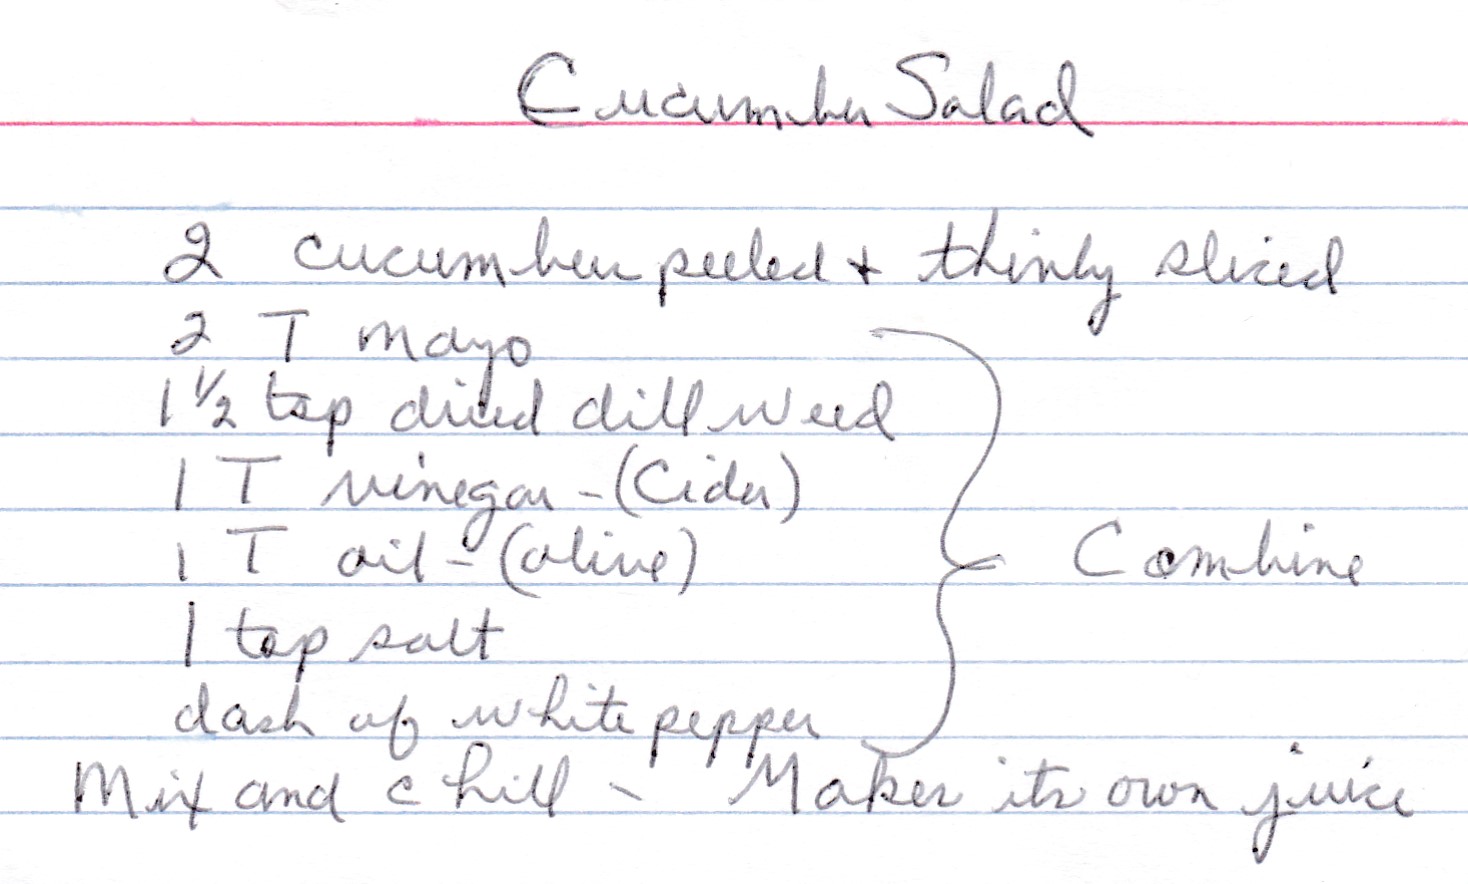 Cucumber Salad
2 cucumber peeled + thinly sliced
2 T mayo
1 1/2 tsp dried dill weed
1 T vinegar - (Cider)
1 T oil - (olive)
Combine
1 tsp salt
dash of white pepper
Mix and chill - Makes its own juice